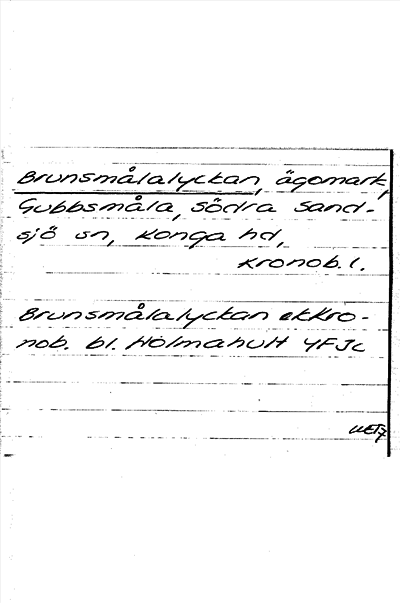 Brunsmålalyckan, ägomark,
Gubbsmåla, södra sand-
sjö sn, Konga hd,
Kronob. l.
Brunsmålalyckan ekKro-
nob. bl. Holmahult 4F Jc